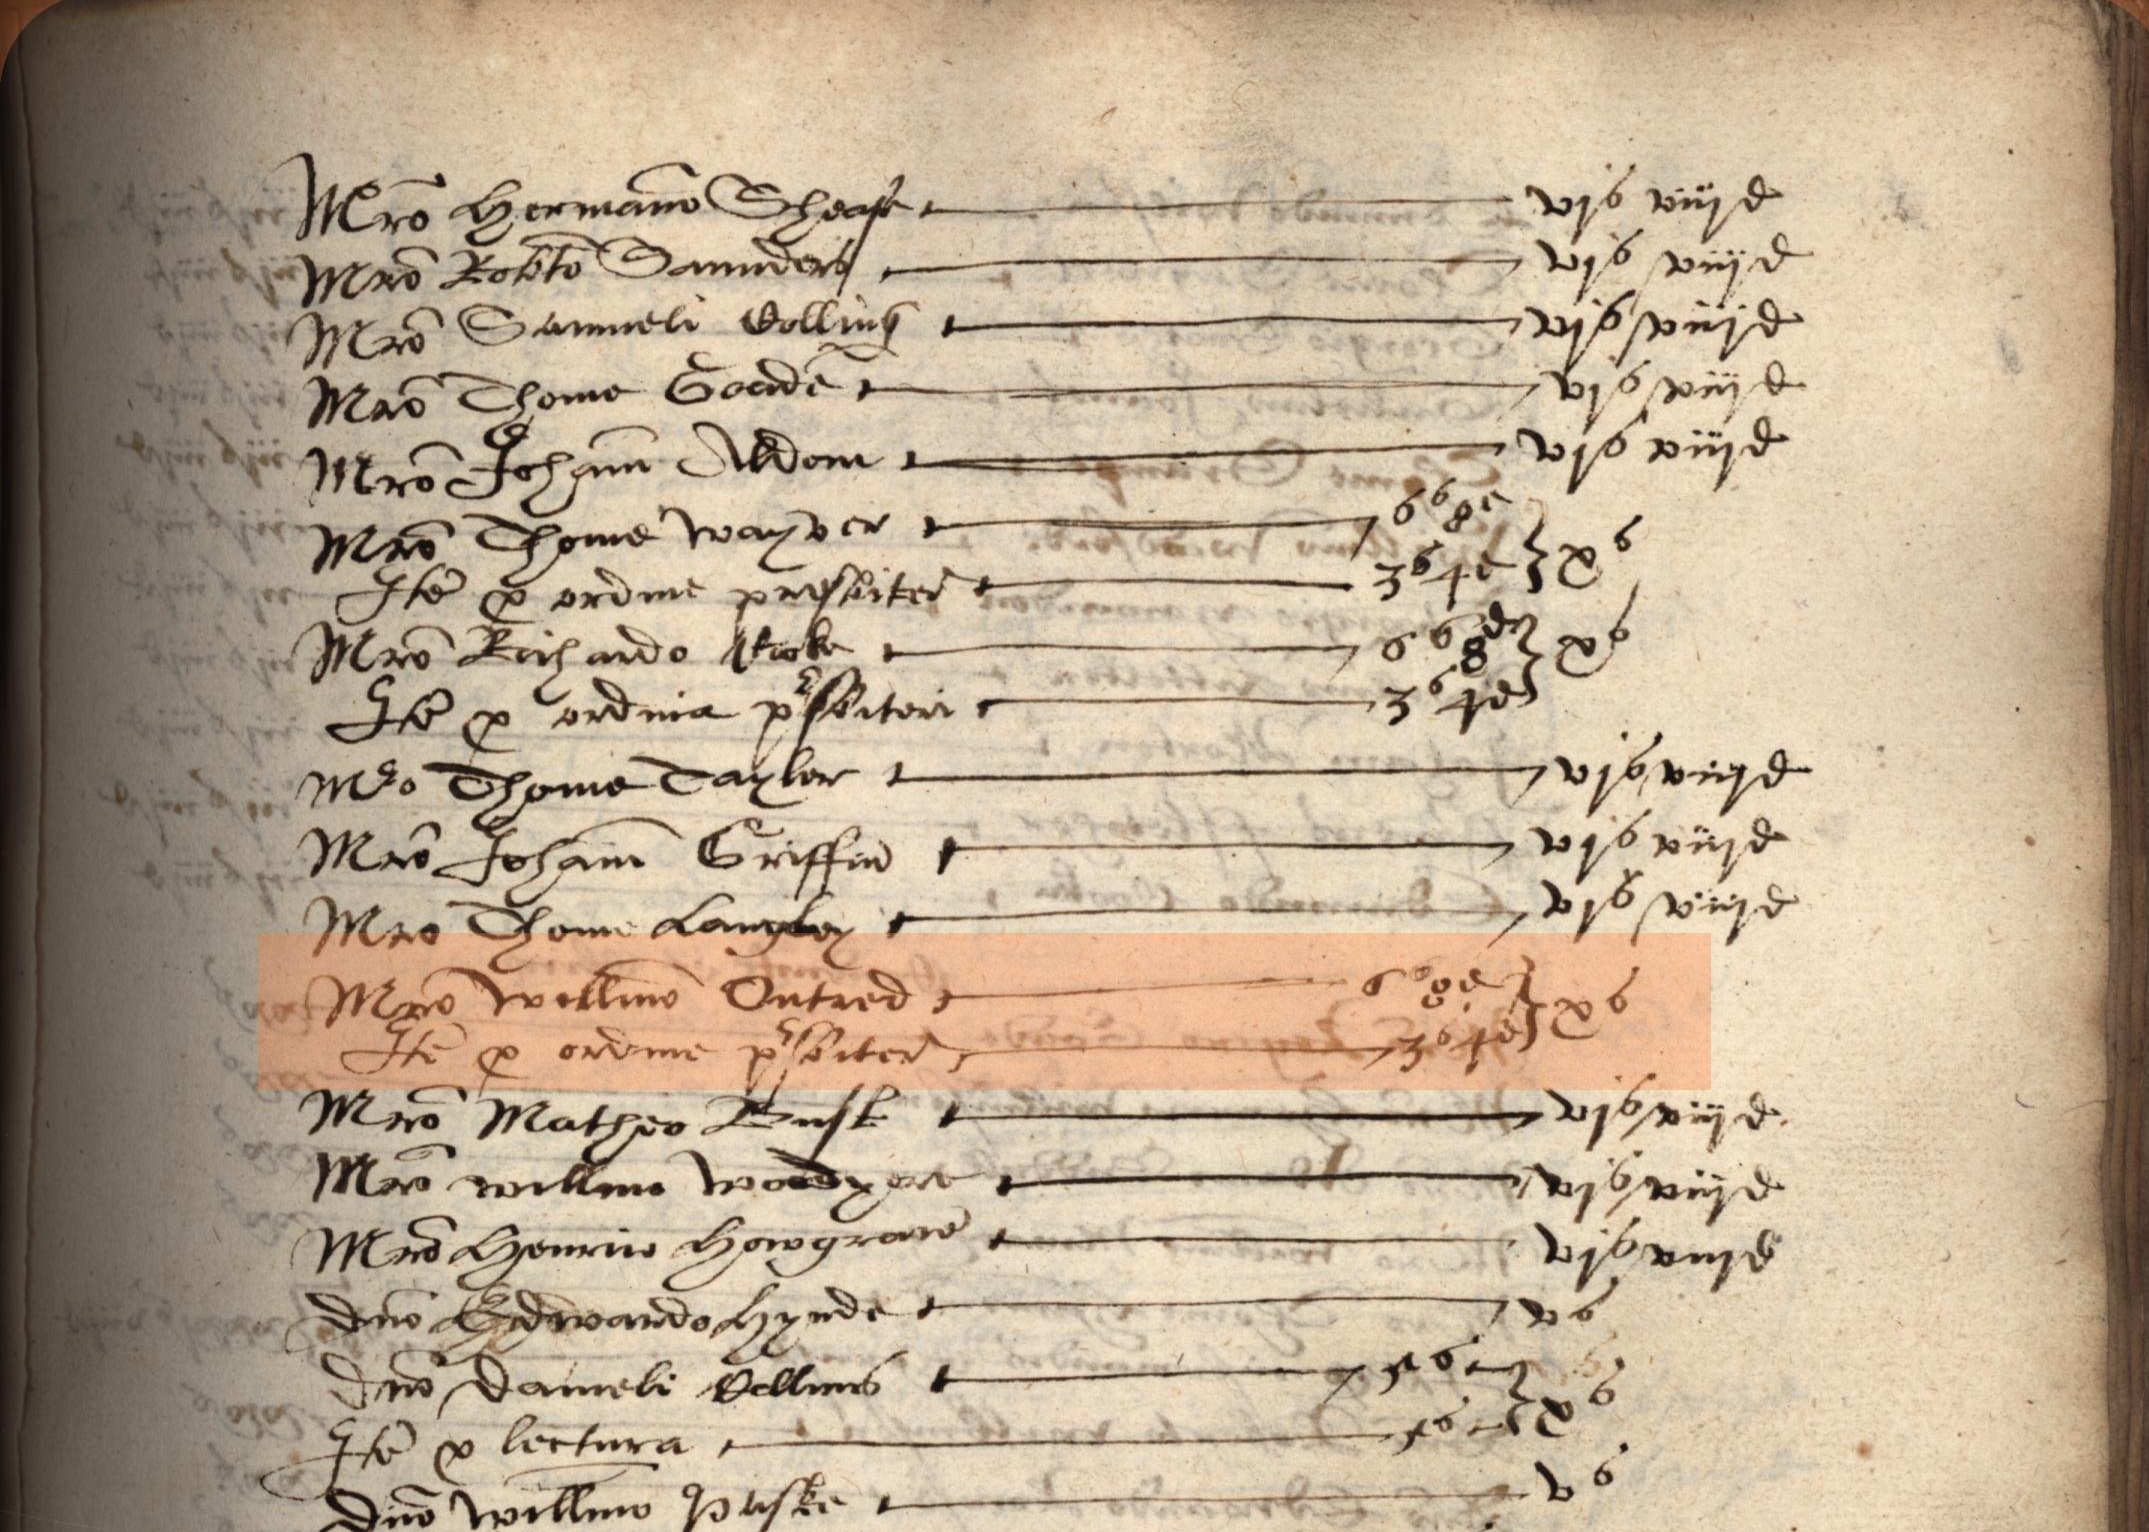 Mro Hermano Sheafe vjs viijd
Mro Robto Saunders vjs viijd
Mro Samueli Collins vjs viijd
Mro Thome Goade vjs viijd
Mro Johani Aldom vjs viijd
Mro Thome Wayver 6s 8d
Ite p ordine presbiter 3s 4d } xs
Mro Richardo 6s 8d } xs
Ite p ordine psbiteri 3s 4d
Mro Thome Tayler vjs viijd
Mro Johani Griffin vjs viijd
Mro Thome Langley vjs viijd
Mro Willmo Outred 6s 8d } xs
Ite p ordine psbiter 3s 4d
Mro Matheo vjs viijd
Mro Willmo Woodyere vjs viijd
Mro Henrico Howgrave vjs viijd
Dno Edwardo Hynde vs
Dno Danieli Collins 5s } xs
Ite p lectura 5s
Dno Willmo vs